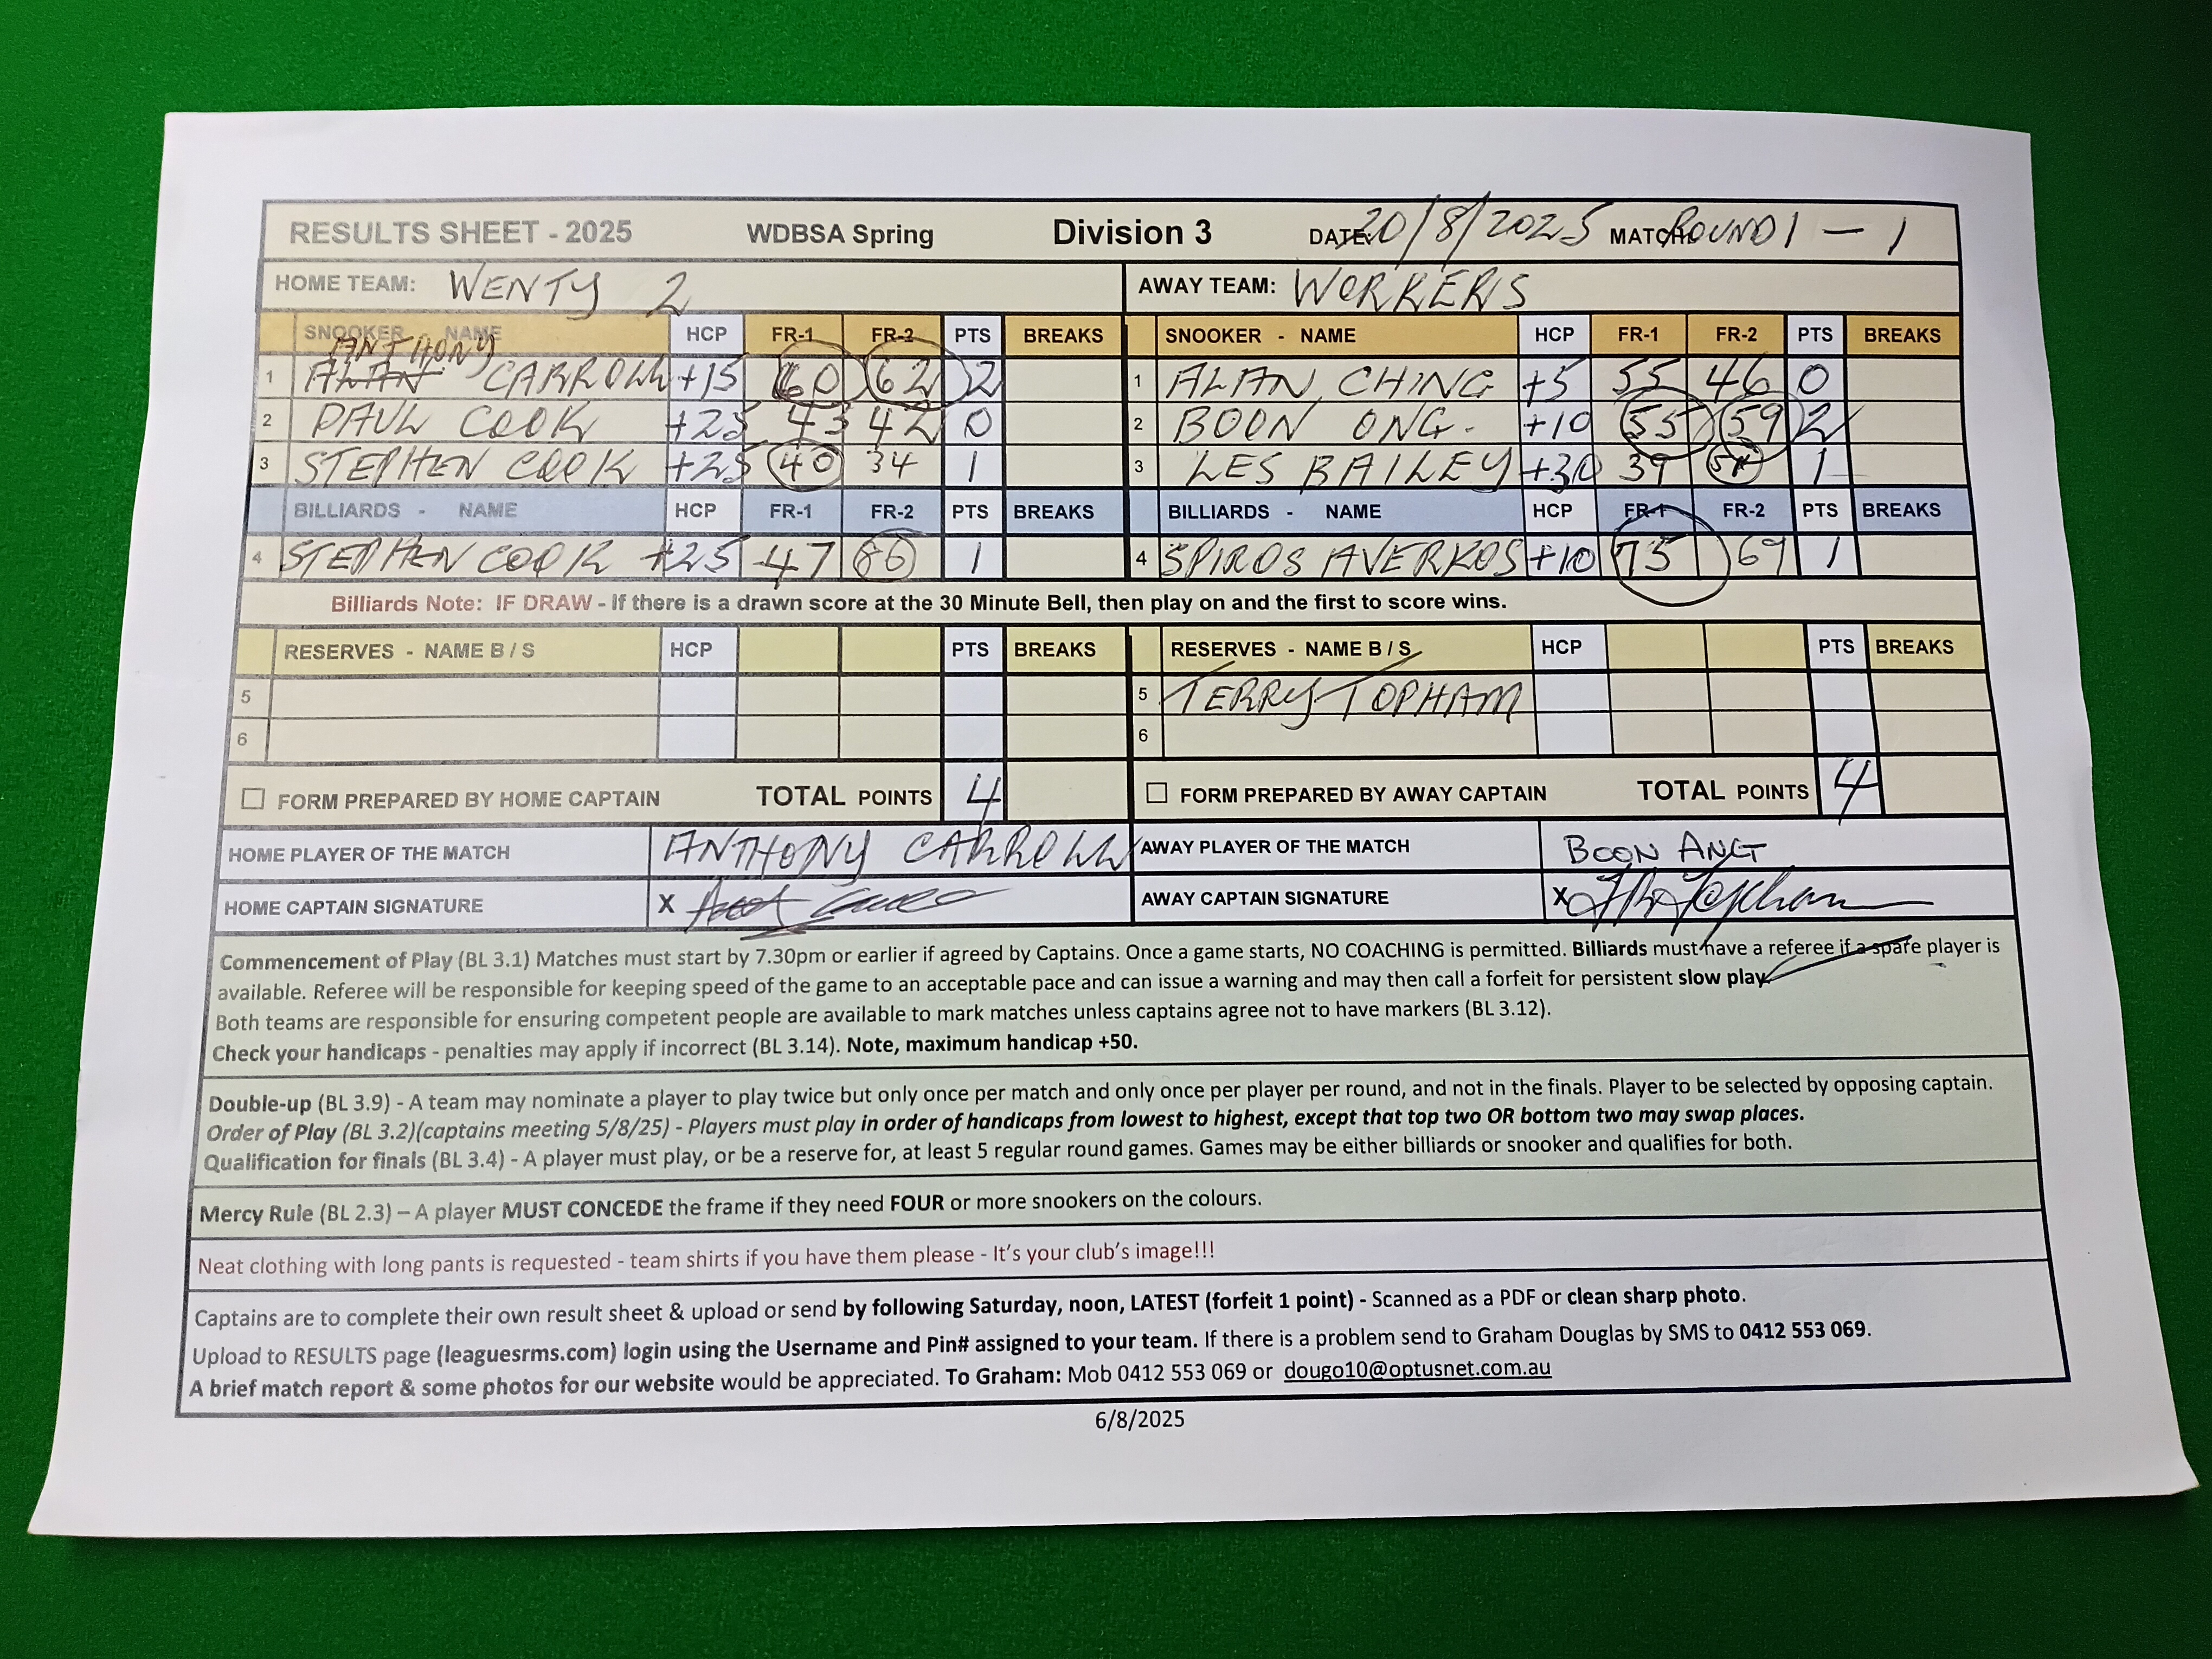 RESULTS SHEET - 2025 WDBSA Spring Division 3 DATE: 20/8/2025 MATCH: ROUND 1 - 1
HOME TEAM: WENTY 2 AWAY TEAM: WORKERS
SNOOKER NAME HCP FR-1 FR-2 PTS BREAKS SNOOKER - NAME HCP FR-1 FR-2 PTS BREAKS
ANTHONY
1 ALAN CARROLL +15 60 62 2 1 ALAN CHING +5 55 46 0
2 PAUL COOK +25 43 42 0 2 BOON ONG. +10 55 59 2
3 STEPHEN COOK +25 40 34 1 3 LES BAILEY +30 39 1
BILLIARDS - NAME HCP FR-1 FR-2 PTS BREAKS BILLIARDS - NAME HCP FR-1 FR-2 PTS BREAKS
4 STEPHEN COOK +25 47 86 1 4 SPIROS AVERKOS +10 75 69 1
Billiards Note: IF DRAW - If there is a drawn score at the 30 Minute Bell, then play on and the first to score wins.
RESERVES - NAME B / S HCP PTS BREAKS RESERVES - NAME B / S HCP PTS BREAKS
5 5 TERRY TOPHAM
6 6
FORM PREPARED BY HOME CAPTAIN TOTAL POINTS 4 FORM PREPARED BY AWAY CAPTAIN TOTAL POINTS 4
HOME PLAYER OF THE MATCH ANTHONY CARROLL AWAY PLAYER OF THE MATCH BOON ANG
HOME CAPTAIN SIGNATURE X AWAY CAPTAIN SIGNATURE X
Commencement of Play (BL 3.1) Matches must start by 7.30pm or earlier if agreed by Captains. Once a game starts, NO COACHING is permitted. Billiards must have a referee if a spare player is
available. Referee will be responsible for keeping speed of the game to an acceptable pace and can issue a warning and may then call a forfeit for persistent slow play.
Both teams are responsible for ensuring competent people are available to mark matches unless captains agree not to have markers (BL 3.12).
Check your handicaps - penalties may apply if incorrect (BL 3.14). Note, maximum handicap +50.
Double-up (BL 3.9) - A team may nominate a player to play twice but only once per match and only once per player per round, and not in the finals. Player to be selected by opposing captain.
Order of Play (BL 3.2)(captains meeting 5/8/25) - Players must play in order of handicaps from lowest to highest, except that top two OR bottom two may swap places.
Qualification for finals (BL 3.4) - A player must play, or be a reserve for, at least 5 regular round games. Games may be either billiards or snooker and qualifies for both.
Mercy Rule (BL 2.3) – A player MUST CONCEDE the frame if they need FOUR or more snookers on the colours.
Neat clothing with long pants is requested - team shirts if you have them please - It's your club's image!!!
Captains are to complete their own result sheet & upload or send by following Saturday, noon, LATEST (forfeit 1 point) - Scanned as a PDF or clean sharp photo.
Upload to RESULTS page (leaguesrms.com) login using the Username and Pin# assigned to your team. If there is a problem send to Graham Douglas by SMS to 0412 553 069.
A brief match report & some photos for our website would be appreciated. To Graham: Mob 0412 553 069 or dougo10@optusnet.com.au
6/8/2025